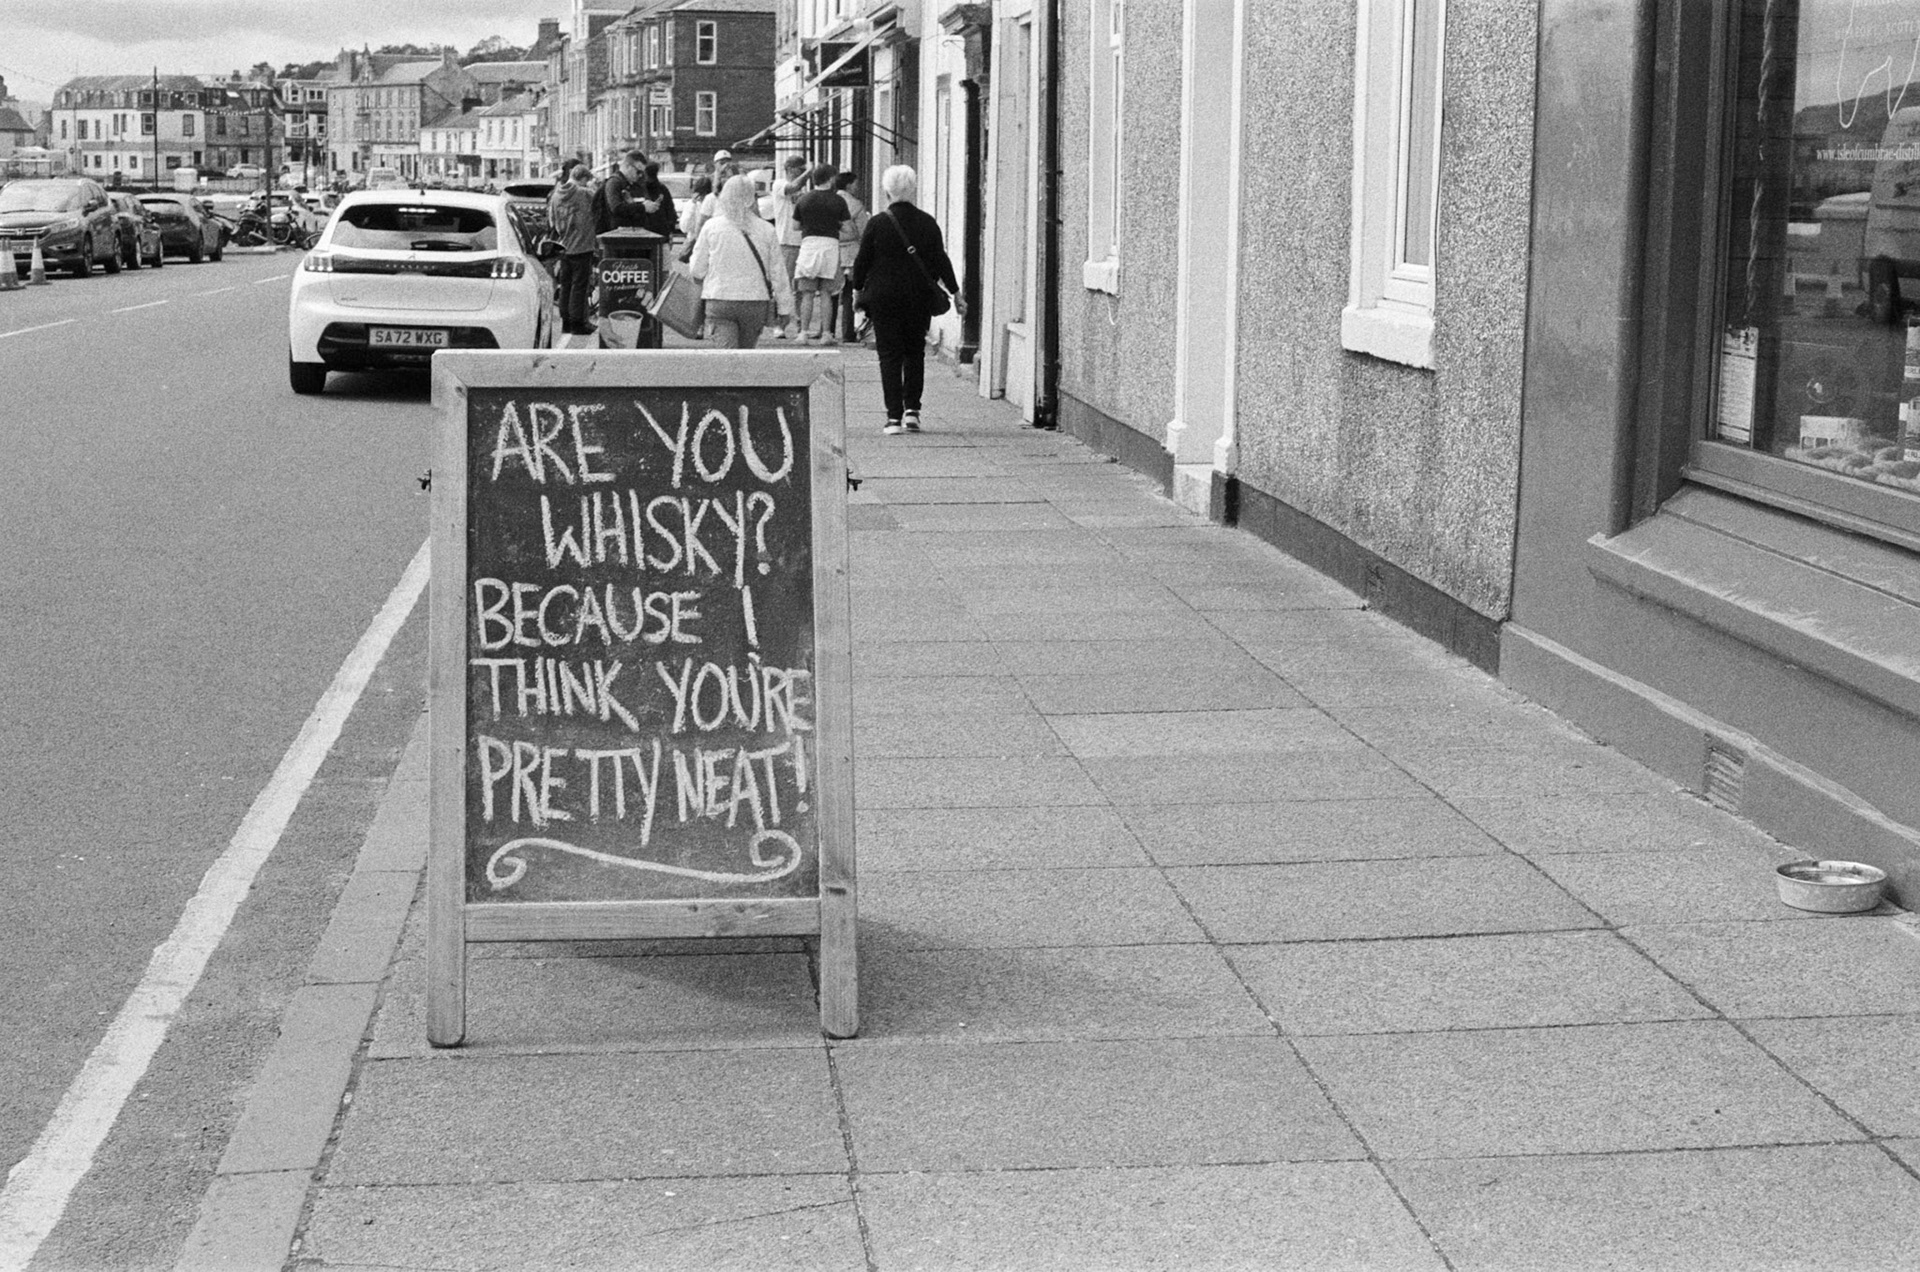 ARE YOU
WHISKY?
BECAUSE I
THINK YOU'RE
PRETTY NEAT!
SA72 WXG
Fresh
COFFEE
www.isleofcumbrae-distill